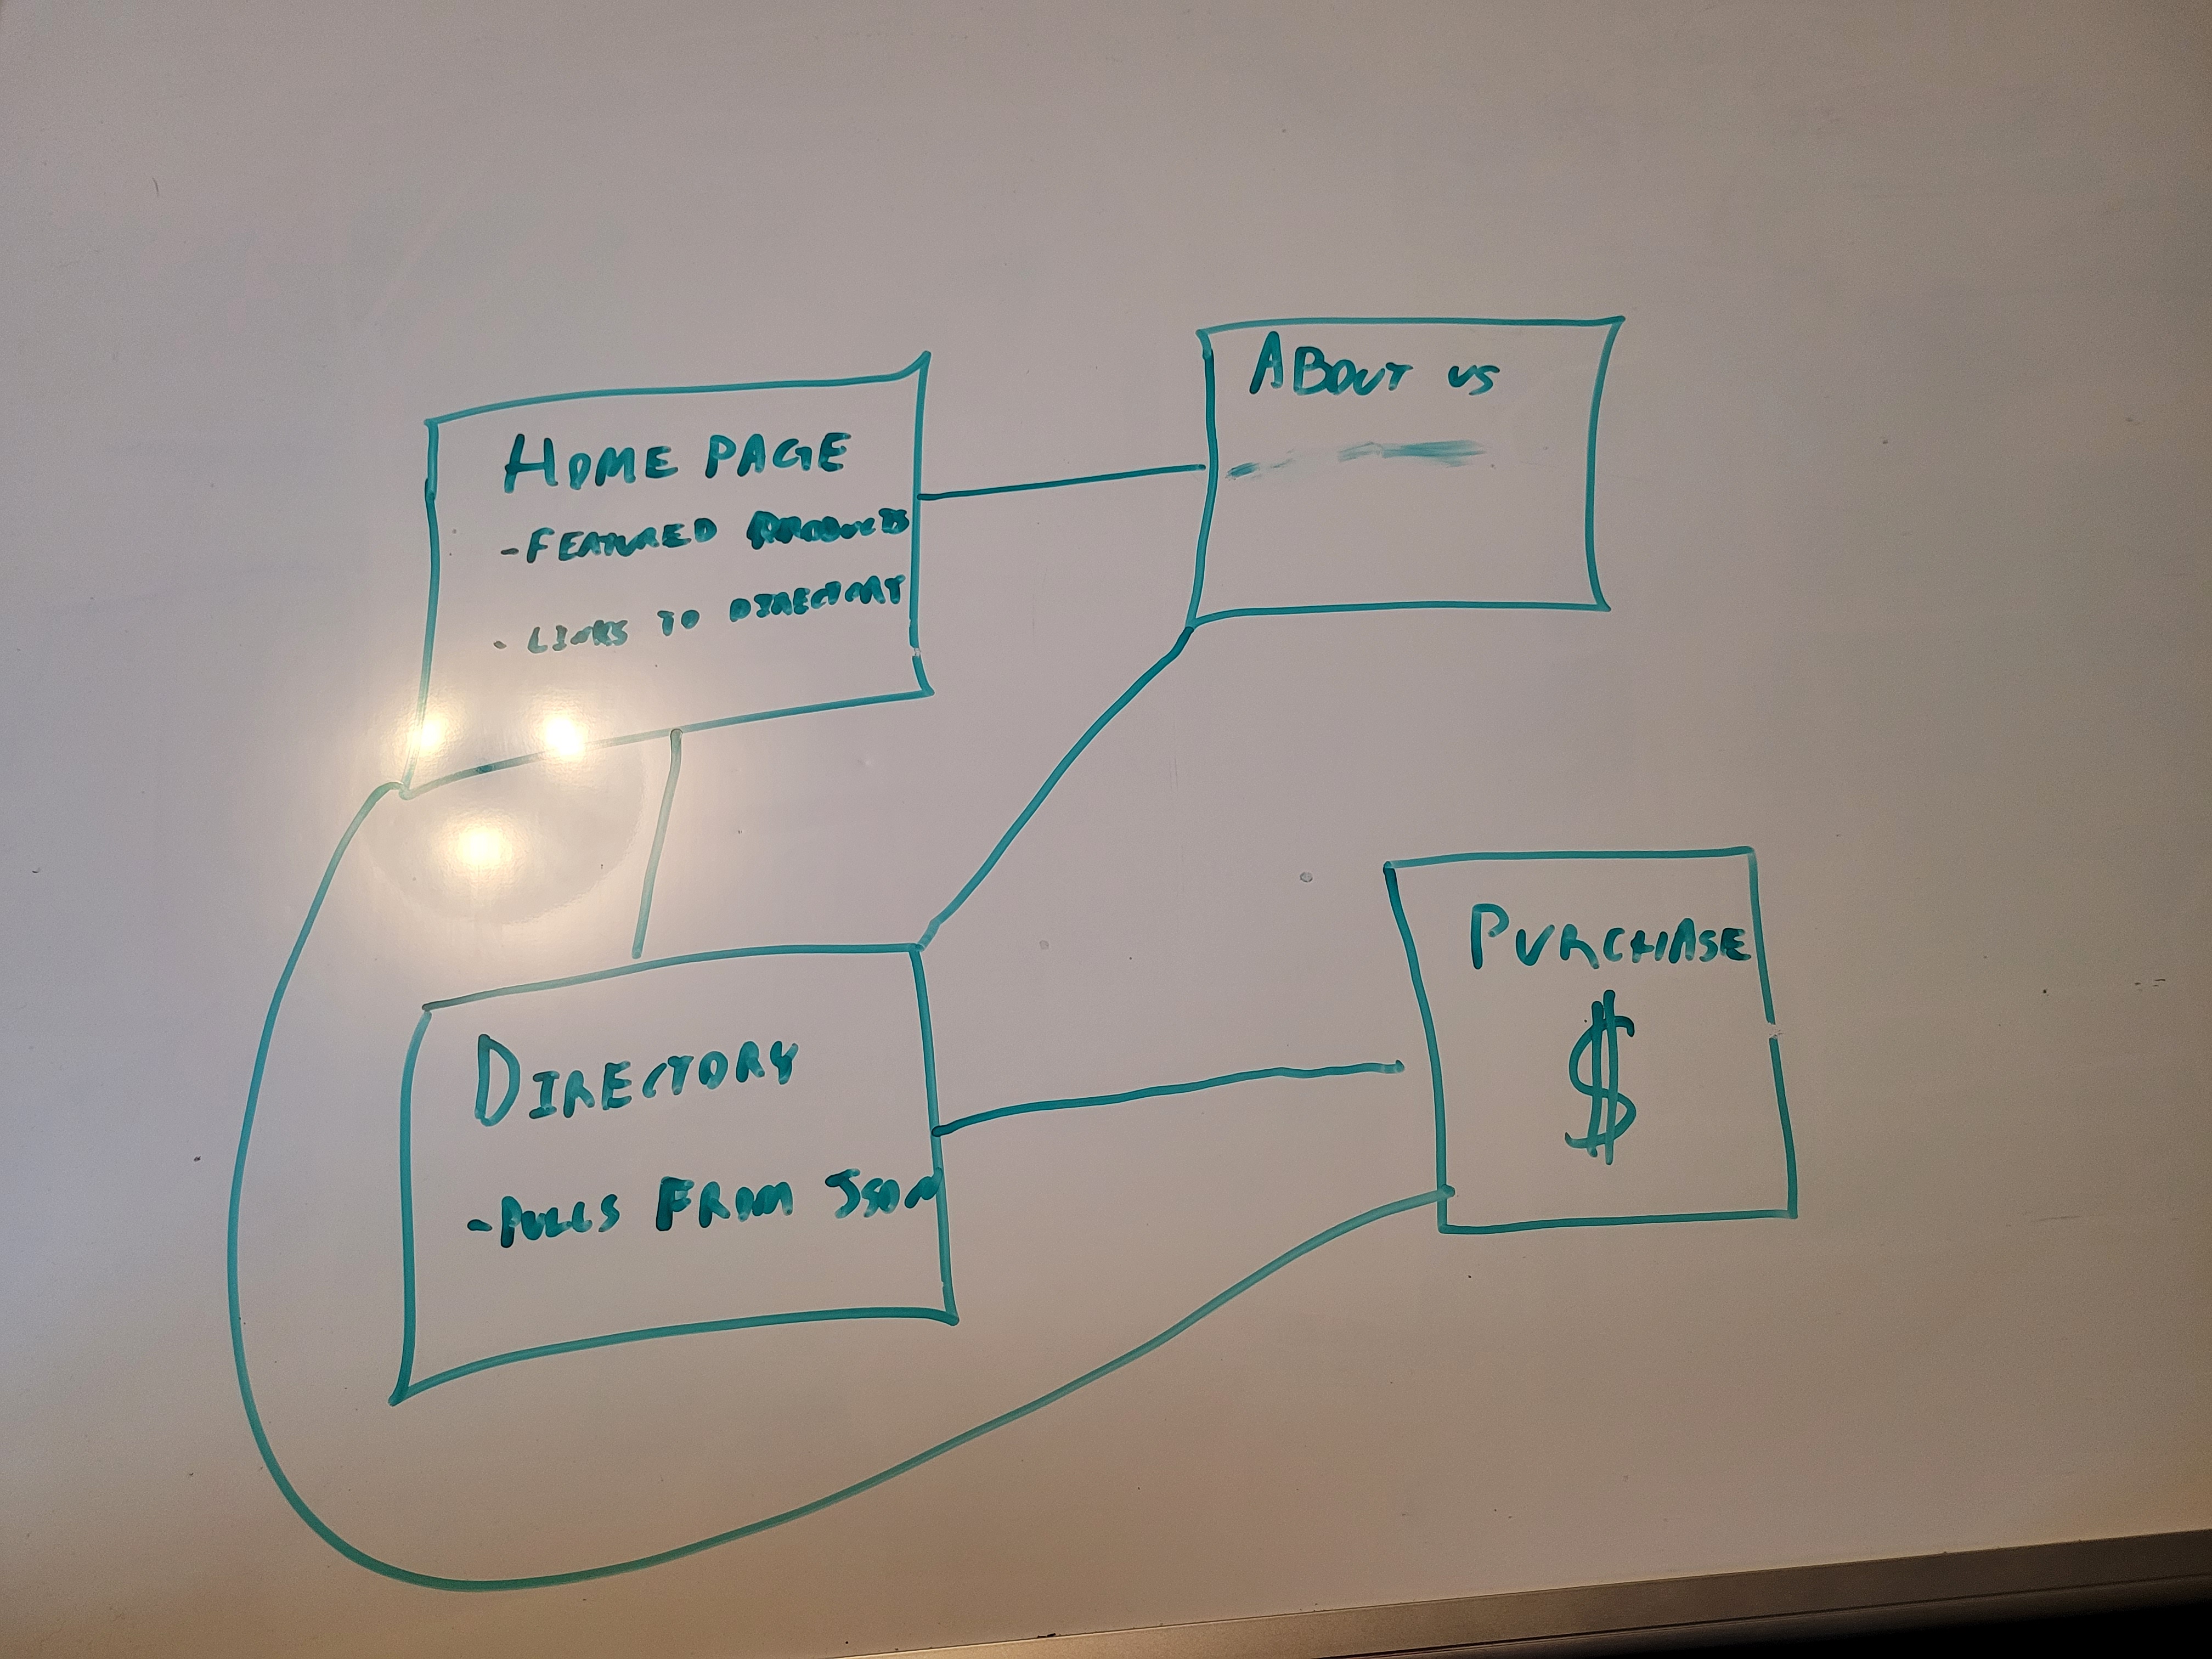 HOME PAGE
- FEATURED PRODUCTS
- LINKS TO DIRECTORY
ABOUT US
DIRECTORY
- PULLS FROM JSON
PURCHASE
$